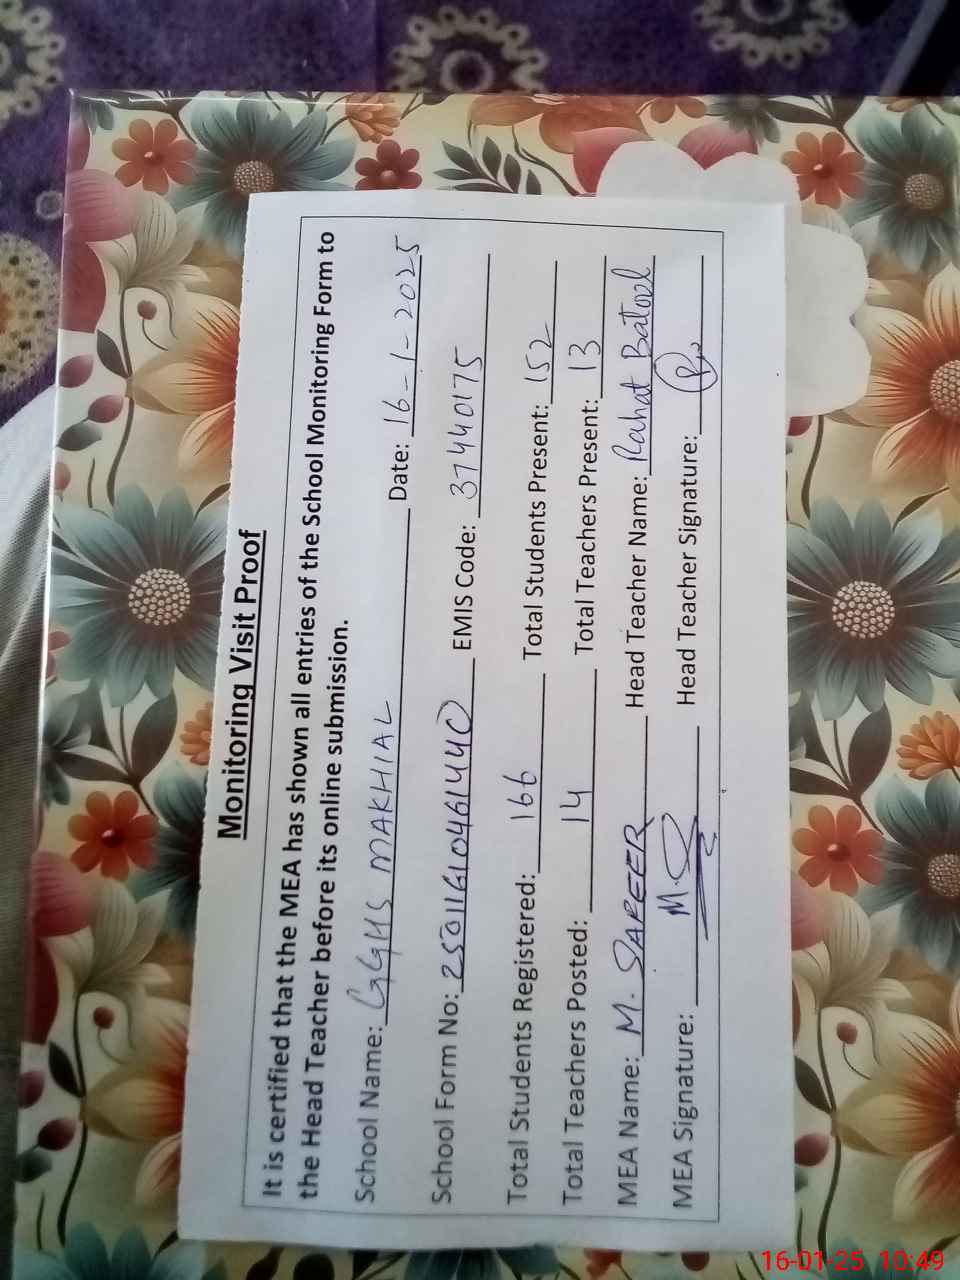 Monitoring Visit Proof
It is certified that the MEA has shown all entries of the School Monitoring Form to
the Head Teacher before its online submission.
School Name: GGHS MAKHIAL Date: 16-1-2025
School Form No: EMIS Code: 37440175
Total Students Registered: 166 Total Students Present: 152
Total Teachers Posted: 14 Total Teachers Present: 13
MEA Name: M. SAFEER Head Teacher Name: Rahat Batool
MEA Signature: Head Teacher Signature:
16-01-25 10:49